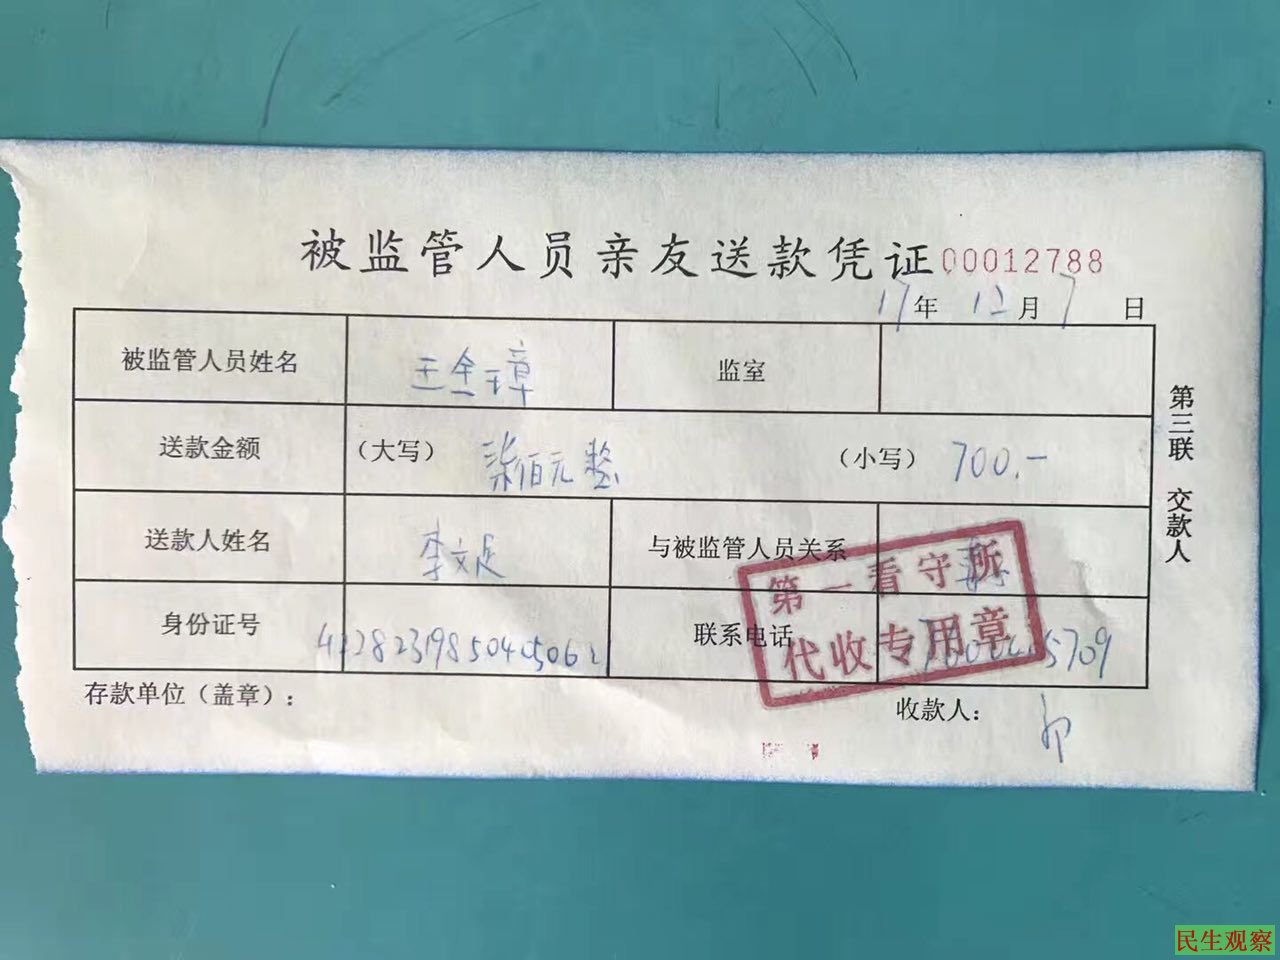 被监管人员亲友送款凭证 00012788
17年 12月 7日
被监管人员姓名 王全璋 监室
送款金额 (大写) 柒佰元整 (小写) 700.-
送款人姓名 李文足 与被监管人员关系
身份证号 联系电话
第一看守所
代收专用章
存款单位(盖章): 收款人:
第三联 交款人
民生观察